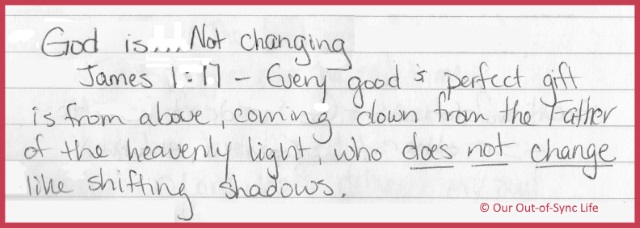 God is... Not changing
James 1:17 - Every good & perfect gift
is from above, coming down from the Father
of the heavenly light, who does not change
like shifting shadows.
© Our Out-of-Sync Life